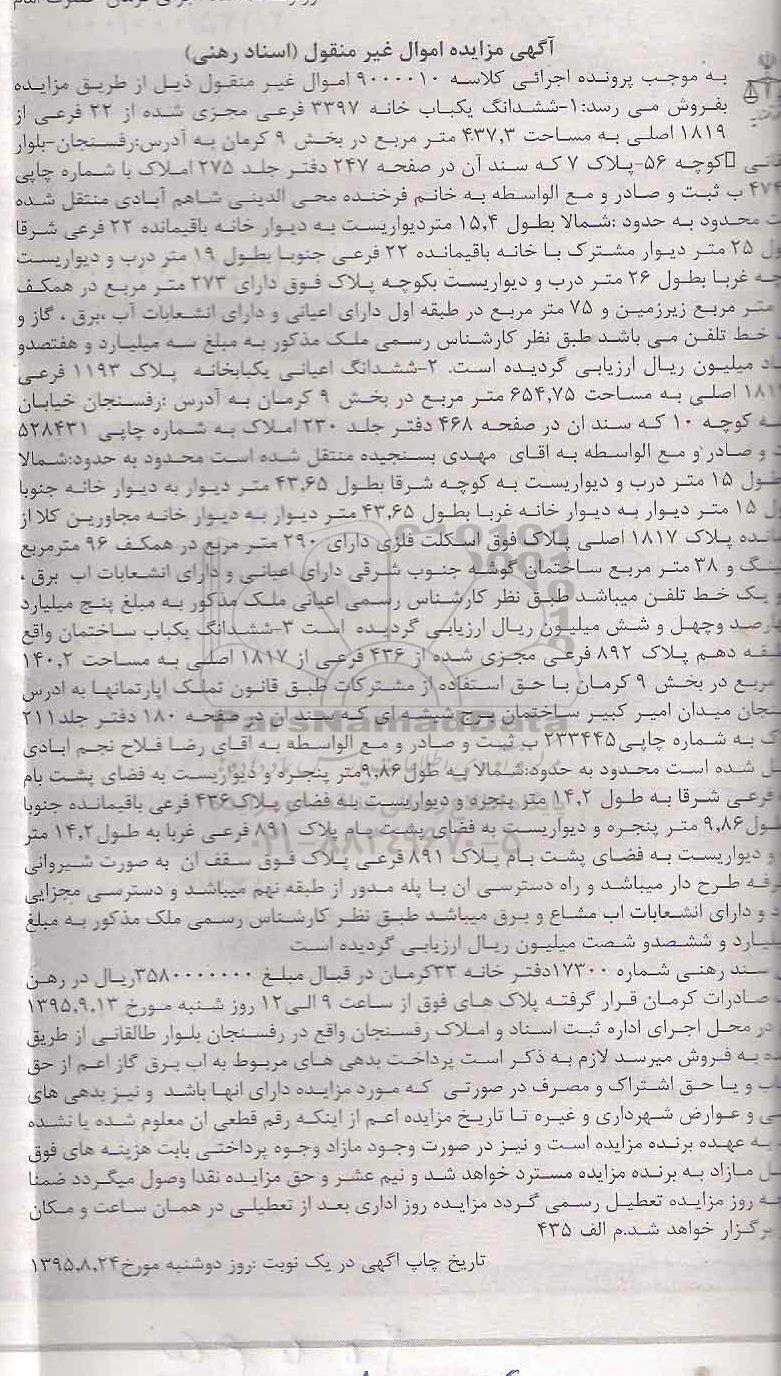 آگهی مزایده اموال غیر منقول (اسناد رهنی)
به موجب پرونده اجرائی کلاسه ۹۰۰۰۰۱۰ اموال غیر منقول ذیل از طریق مزایده
بفروش می رسد:۱-ششدانگ یکباب خانه ۳۳۹۷ فرعی مجزی شده از ۲۲ فرعی از
۱۸۱۹ اصلی به مساحت ۴۳۷,۳ متر مربع در بخش ۹ کرمان به آدرس:رفسنجان-بلوار
کوچه ۵۶-پلاک ۷ که سند آن در صفحه ۲۴۷ دفتر جلد ۲۷۵ املاک با شماره چاپی
ب ثبت و صادر و مع الواسطه به خانم فرخنده محی الدینی شاهم آبادی منتقل شده
محدود به حدود :شمالا بطول ۱۵,۴ متردیواریست به دیوار خانه باقیمانده ۲۲ فرعی شرقا
۲۵ متر دیوار مشترک با خانه باقیمانده ۲۲ فرعی جنوبا بطول ۱۹ متر درب و دیواریست
غربا بطول ۲۶ متر درب و دیواریست بکوچه پلاک فوق دارای ۲۷۳ متر مربع در همکف
متر مربع زیرزمین و ۷۵ متر مربع در طبقه اول دارای اعیانی و دارای انشعابات آب ،برق ، گاز و
خط تلفن می باشد طبق نظر کارشناس رسمی ملک مذکور به مبلغ سه میلیارد و هفتصدو
میلیون ریال ارزیابی گردیده است. ۲-ششدانگ اعیانی یکبابخانه پلاک ۱۱۹۳ فرعی
اصلی به مساحت ۶۵۴,۷۵ متر مربع در بخش ۹ کرمان به آدرس :رفسنجان خیابان
کوچه ۱۰ که سند ان در صفحه ۴۶۸ دفتر جلد ۲۳۰ املاک به شماره چاپی ۵۲۸۴۳۱
و صادر و مع الواسطه به اقای مهدی بسنجیده منتقل شده است محدود به حدود:شمالا
۱۵ متر درب و دیواریست به کوچه شرقا بطول ۴۳,۶۵ متر دیوار به دیوار خانه جنوبا
۱۵ متر دیوار به دیوار خانه غربا بطول ۴۳,۶۵ متر دیوار به دیوار خانه مجاورین کلا از
پلاک ۱۸۱۷ اصلی پلاک فوق اسکلت فلزی دارای ۲۹۰ متر مربع در همکف ۹۶ مترمربع
و ۳۸ متر مربع ساختمان گوشه جنوب شرقی دارای اعیانی و دارای انشعابات اب برق ،
یک خط تلفن میباشد طبق نظر کارشناس رسمی اعیانی ملک مذکور به مبلغ پنج میلیارد
وچهل و شش میلیون ریال ارزیابی گردیده است ۳-ششدانگ یکباب ساختمان واقع
دهم پلاک ۸۹۲ فرعی مجزی شده از ۴۳۶ فرعی از ۱۸۱۷ اصلی به مساحت ۱۴۰,۲
مربع در بخش ۹ کرمان با حق استفاده از مشترکات طبق قانون تملک اپارتمانها به ادرس
میدان امیر کبیر ساختمان برج شیشه ای که سند ان در صفحه ۱۸۰ دفتر جلد۲۱۱
به شماره چاپی۲۳۳۴۴۵ ب ثبت و صادر و مع الواسطه به اقای رضا فلاح نجم ابادی
شده است محدود به حدود:شمالا به طول۹,۸۶متر پنجره و دیواریست به فضای پشت بام
فرعی شرقا به طول ۱۴,۲ متر پنجره و دیواریست به فضای پلاک۴۳۶ فرعی باقیمانده جنوبا
۹,۸۶ متر پنجره و دیواریست به فضای پشت بام پلاک ۸۹۱ فرعی غربا به طول۱۴,۲ متر
و دیواریست به فضای پشت بام پلاک ۸۹۱ فرعی پلاک فوق سقف ان به صورت شیروانی
طرح دار میباشد و راه دسترسی ان با پله مدور از طبقه نهم میباشد و دسترسی مجزایی
و دارای انشعابات اب مشاع و برق میباشد طبق نظر کارشناس رسمی ملک مذکور به مبلغ
و ششصدو شصت میلیون ریال ارزیابی گردیده است
سند رهنی شماره ۱۷۳۰۰دفتر خانه ۳۳کرمان در قبال مبلغ ۳۵۸۰۰۰۰۰۰۰ریال در رهن
صادرات کرمان قرار گرفته پلاک های فوق از ساعت ۹ الی۱۲ روز شنبه مورخ ۱۳۹۵,۹,۱۳
در محل اجرای اداره ثبت اسناد و املاک رفسنجان واقع در رفسنجان بلوار طالقانی از طریق
به فروش میرسد لازم به ذکر است پرداخت بدهی های مربوط به اب برق گاز اعم از حق
و یا حق اشتراک و مصرف در صورتی که مورد مزایده دارای انها باشد و نیز بدهی های
و عوارض شهرداری و غیره تا تاریخ مزایده اعم از اینکه رقم قطعی ان معلوم شده یا نشده
به عهده برنده مزایده است و نیز در صورت وجود مازاد وجوه پرداختی بابت هزینه های فوق
مازاد به برنده مزایده مسترد خواهد شد و نیم عشر و حق مزایده نقدا وصول میگردد ضمنا
روز مزایده تعطیل رسمی گردد مزایده روز اداری بعد از تعطیلی در همان ساعت و مکان
برگزار خواهد شد.م الف ۴۳۵
تاریخ چاپ اگهی در یک نوبت :روز دوشنبه مورخ۱۳۹۵,۸,۲۴
ParsNamadData